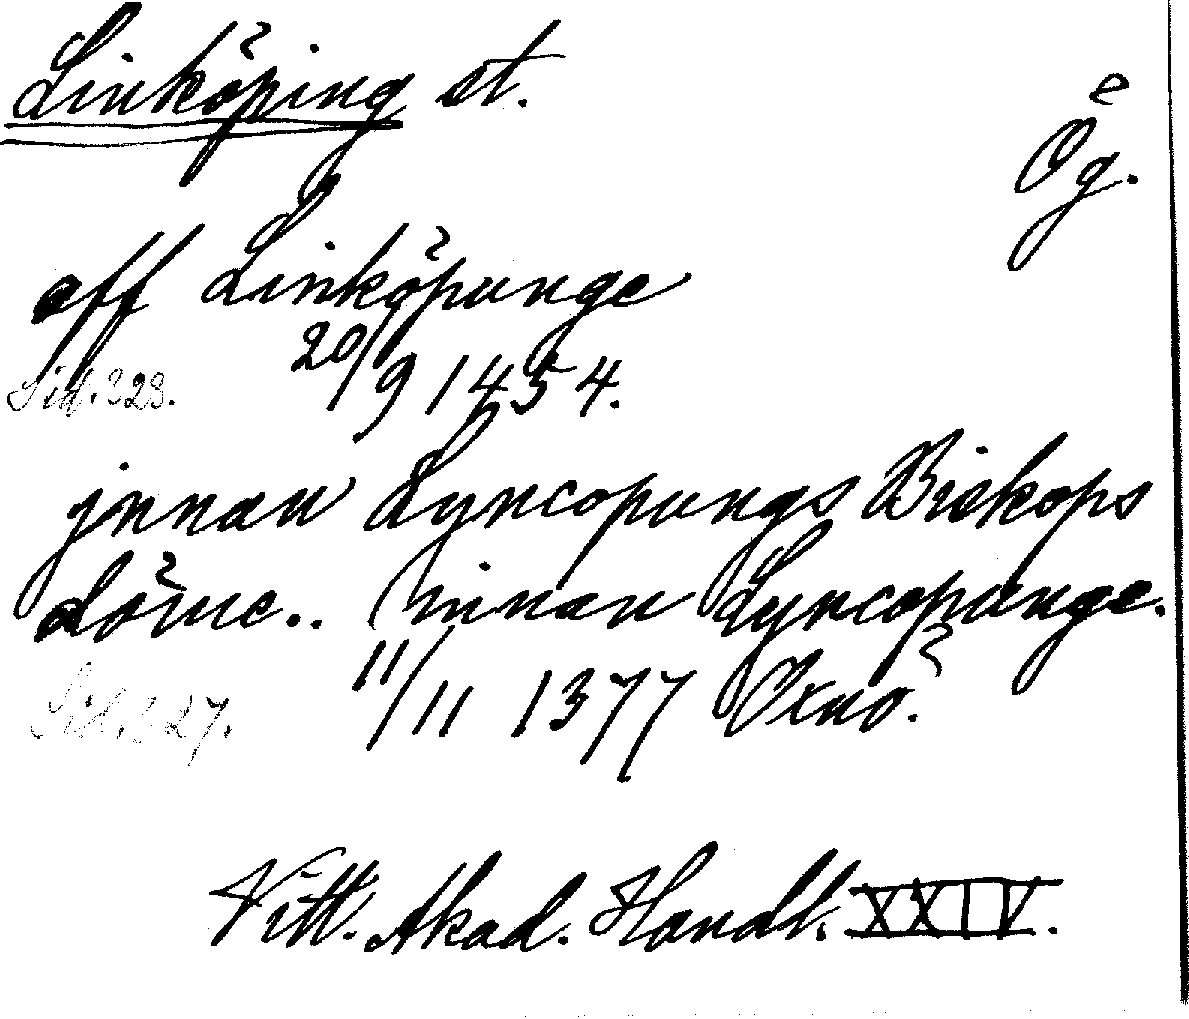 Linköping st.
Ög.
aff Linköpunge
Sid. 323. 20/9 1454.
jnnan Lyncopungs Biskops
döme.. (hinnan Lyncopunge.
Sid. 327. 11/11 1377 Oxnö.
Vitt. Akad. Handl. XXIV.